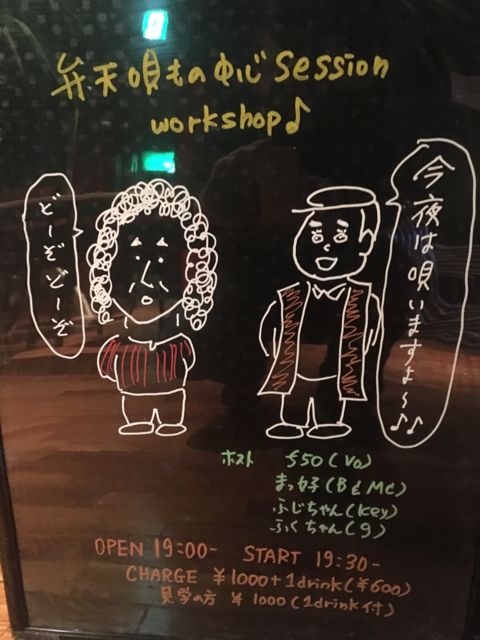 弁天唄もの中心 Session
workshop♪
どーぞどーぞ
今夜は唄いますよ〜♪♪
ホスト ち50(Vo)
まっ好(B & MC)
ふじちゃん(key)
ふくちゃん(g)
OPEN 19:00- START 19:30-
CHARGE ¥1000+1drink(¥600)
見学の方 ¥1000(1drink付)